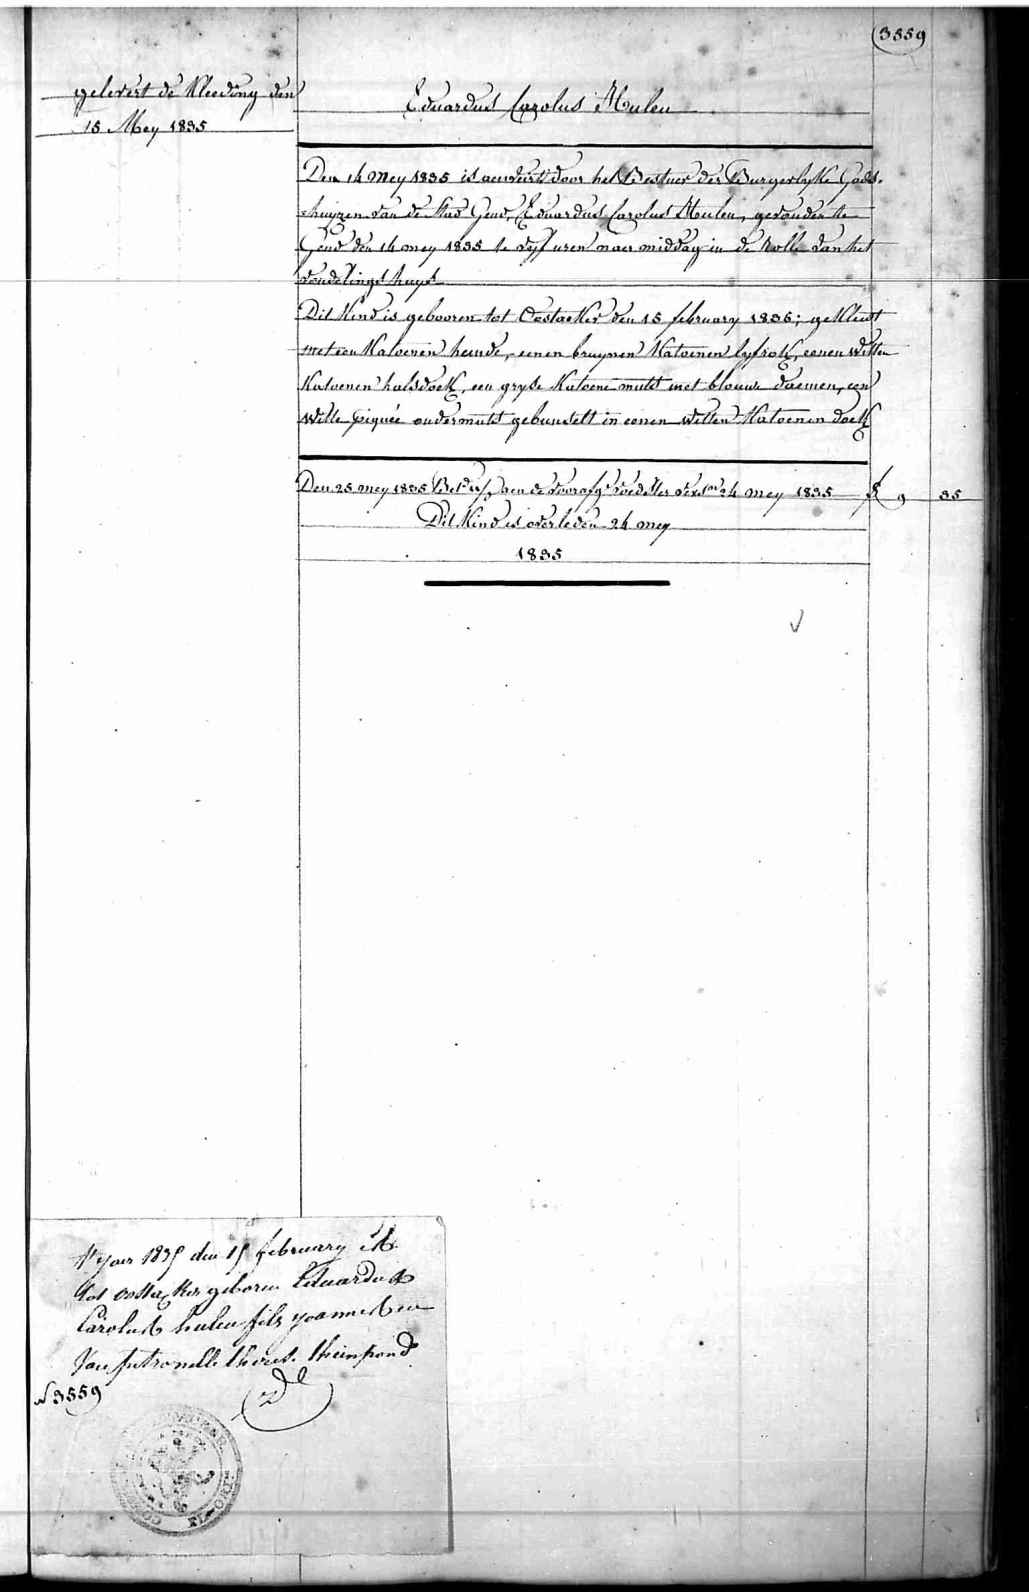 3559
gelevert de Kleeding den
15 Mey 1835
Eduardus Carolus Huleu
Den 14 mey 1835 is aenveirt door het Bestuer der Burgerlyke Gods-
-huyzen van de stad Gend, Eduardus Carolus Huleu, gevonden te
Gend den 14 mey 1835 te vyf uren naer middag in de Rolle van het
vondelings huys
Dit Kind is gebooren tot Oostacker den 15 february 1835; gekleed
met een Katoenen hemde, eenen bruynen Katoenen lyfrok, eenen witten
Katoenen halsdoek, een gryse Katoene muts met blauwe
witte piquée ondermuts gebundelt in eenen witten Katoenen doek
Den 25 mey 1835 Bet. aen de voorafg. voedster 24 mey 1835 9 35
Dit Kind is overleden 24 mey
1835
jaer 1835 den 15 february is
tot oostacker geboren Eduardus
Carolus huleu fils yoannes en
van petronelle theres.
N 3559